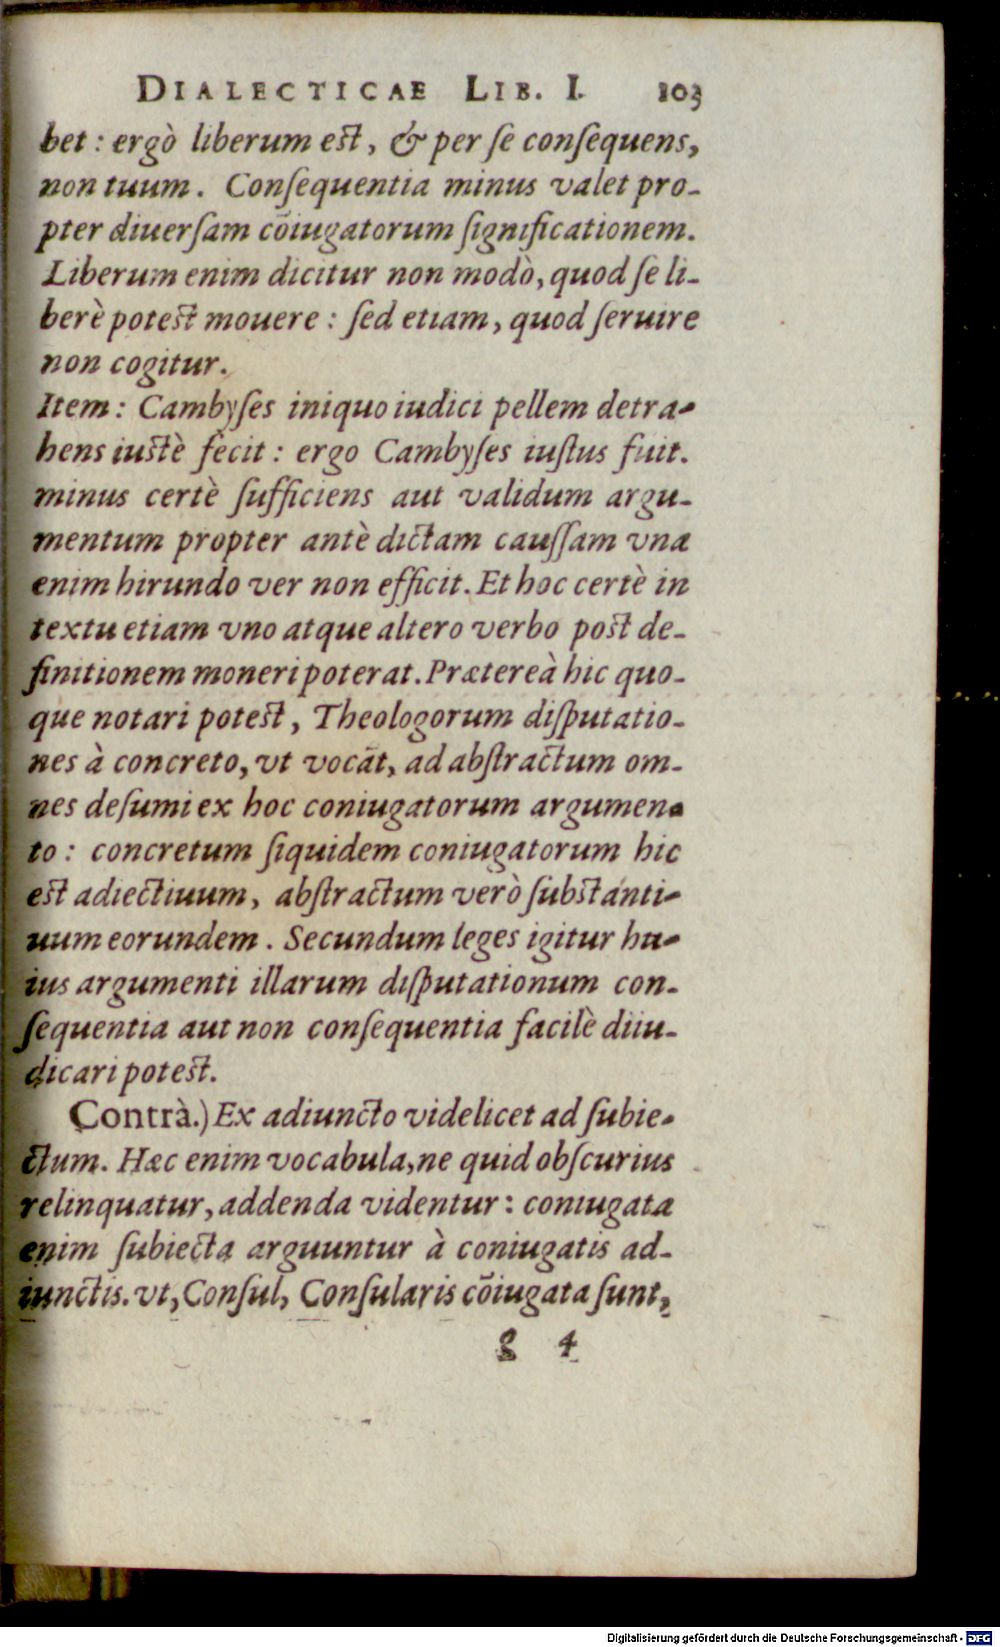 DIALECTICAE LIB. I. 103
bet : ergò liberum est, & per se consequens,
non tuum. Consequentia minus valet pro-
pter diuersam cõiugatorum significationem.
Liberum enim dicitur non modò, quod se li-
berè potest mouere : sed etiam, quod seruire
non cogitur.
Item : Cambyses iniquo iudici pellem detra-
hens iustè fecit : ergo Cambyses iustus fuit.
minus certè sufficiens aut validum argu-
mentum propter antè dictam caussam vna
enim hirundo ver non efficit. Et hoc certè in
textu etiam vno atque altero verbo post de-
finitionem moneri poterat. Prætereà hic quo-
que notari potest, Theologorum disputatio-
nes à concreto, vt vocãt, ad abstractum om-
nes desumi ex hoc coniugatorum argumen-
to : concretum siquidem coniugatorum hic
est adiectiuum, abstractum verò substanti-
uum eorundem. Secundum leges igitur hu-
ius argumenti illarum disputationum con-
sequentia aut non consequentia facilè diiu-
dicari potest.
Contrà.) Ex adiuncto videlicet ad subie-
ctum. Hæc enim vocabula, ne quid obscurius
relinquatur, addenda videntur : coniugata
enim subiecta arguuntur à coniugatis ad-
iunctis. vt, Consul, Consularis cõiugata sunt,
g 4
Digitalisierung gefördert durch die Deutsche Forschungsgemeinschaft - DFG